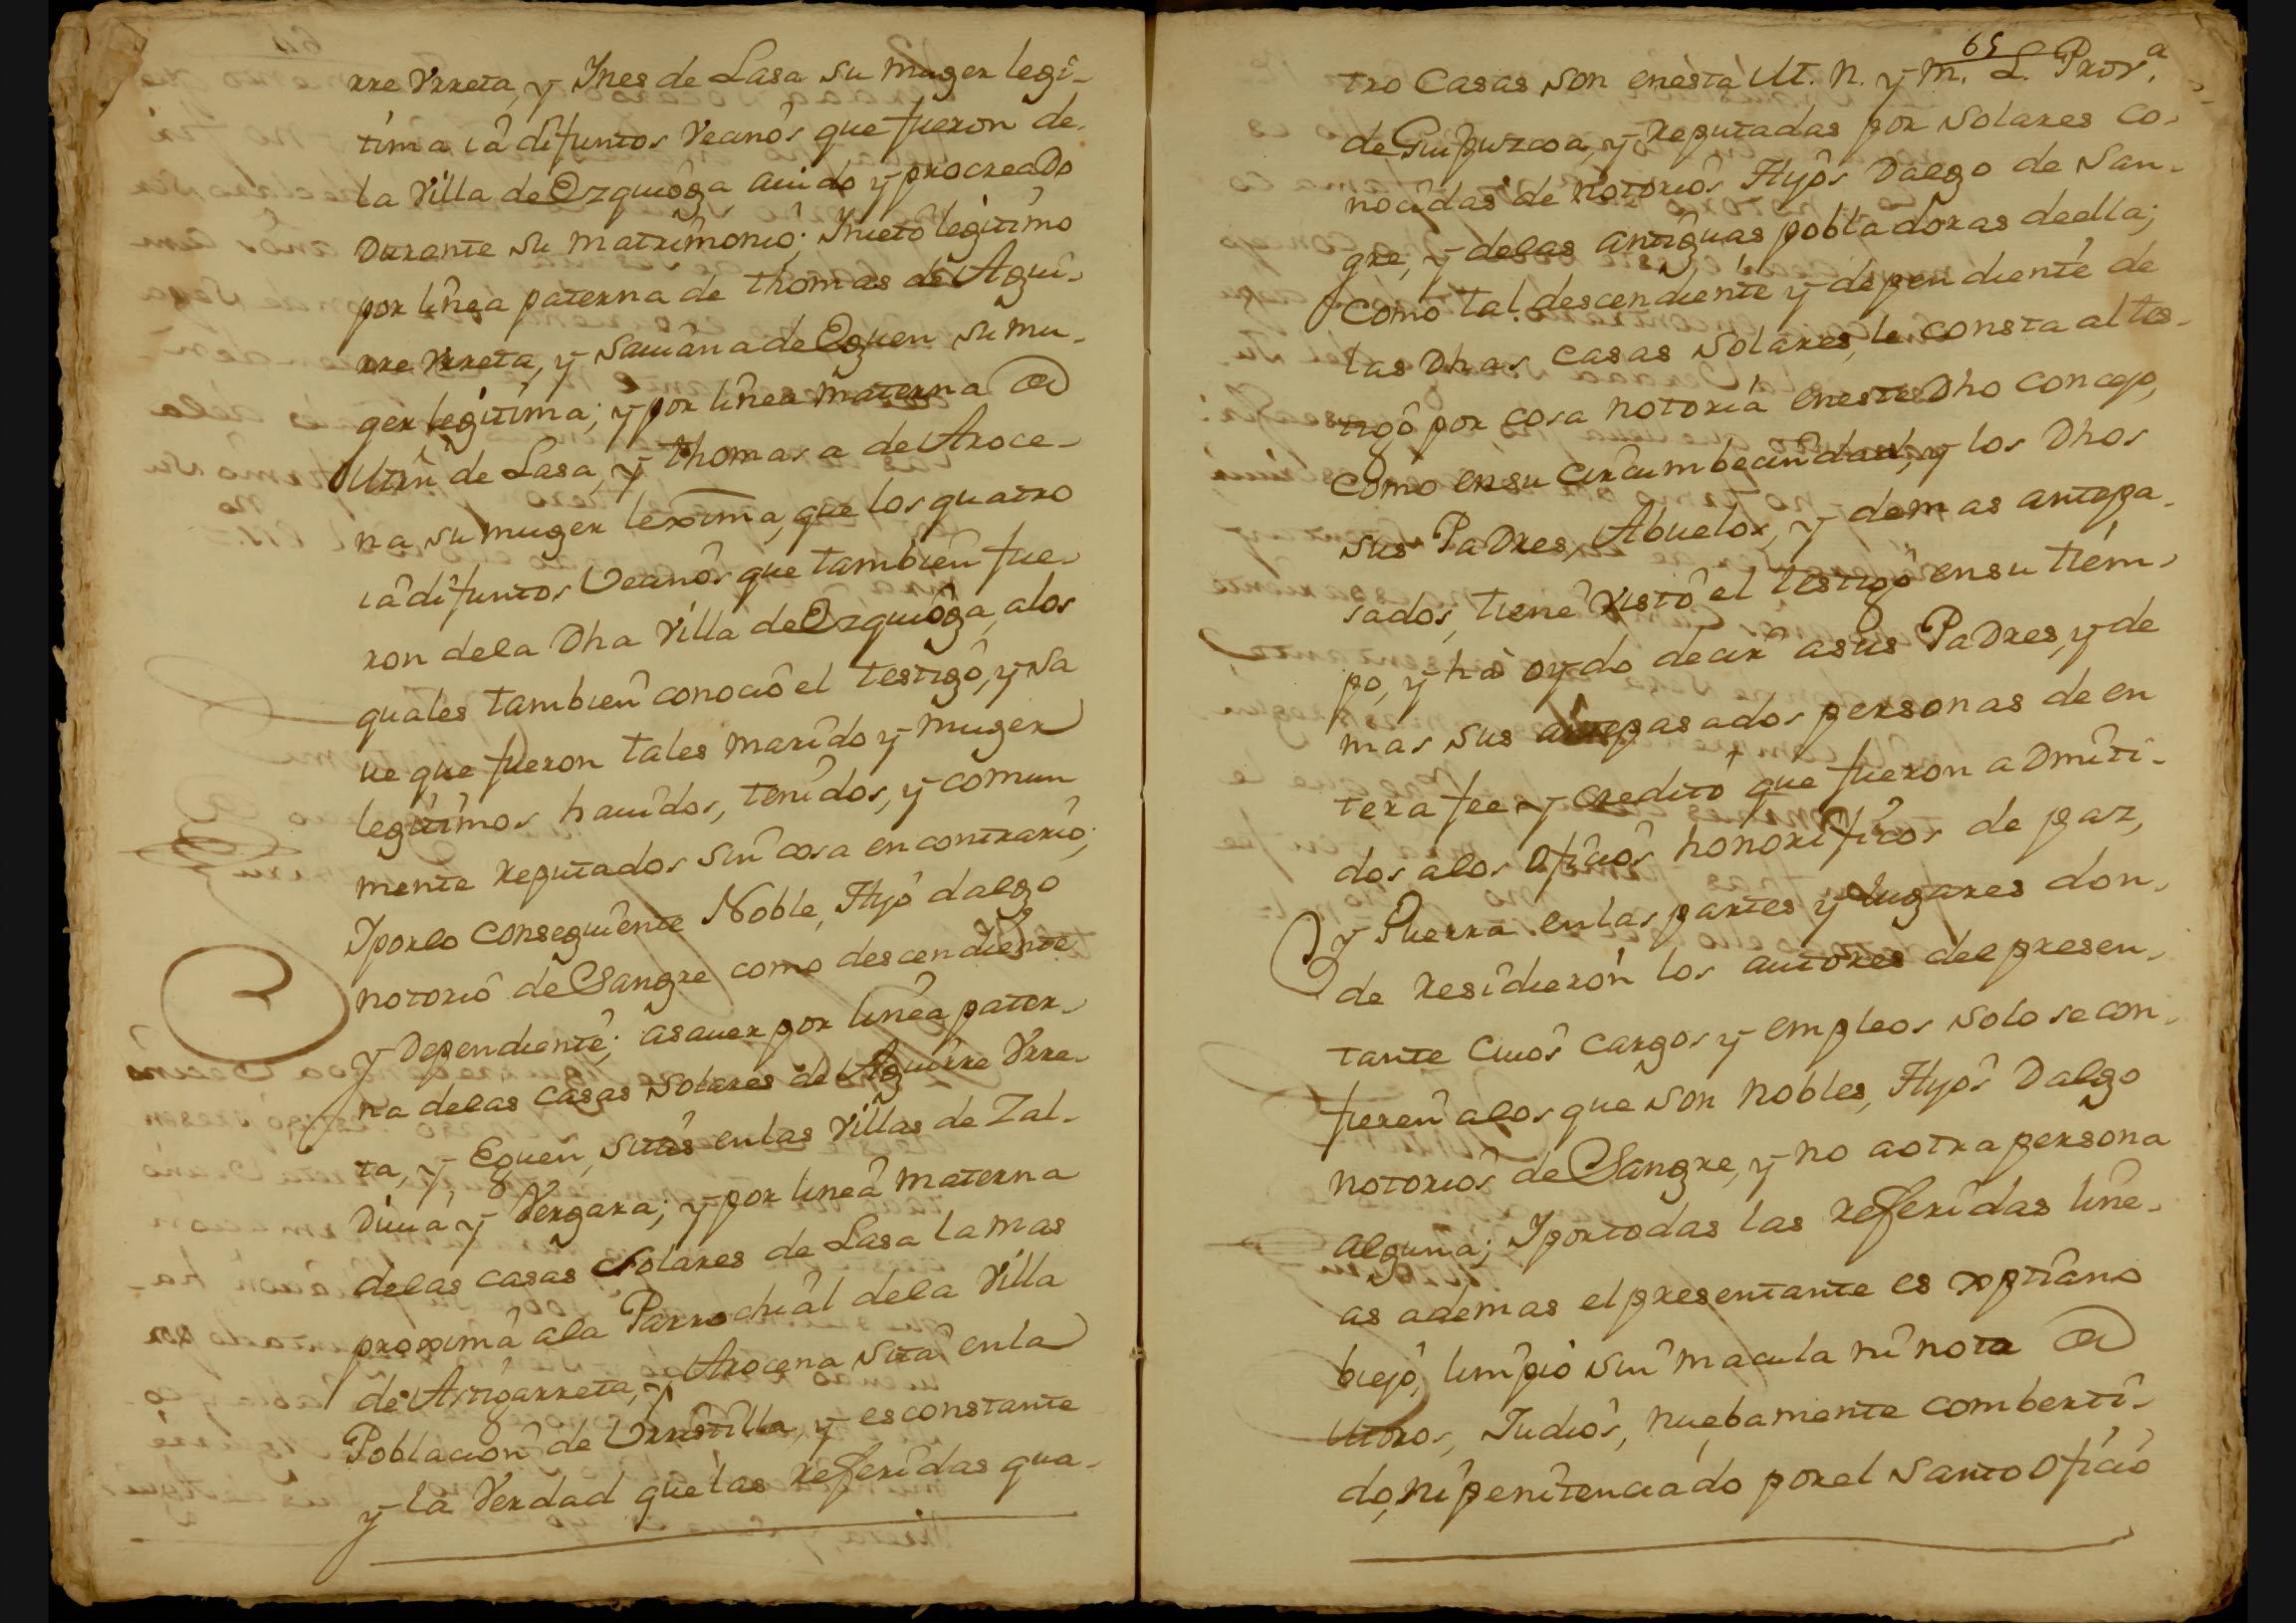 rre Vrreta, y Ines de Lasa su muger legi-
tima ia difuntos Vecinos que fueron de
la Villa de Ezquioga auido y procreado
durante su matrimonio; Inieto legitimo
por linea paterna de thomas de Agui-
rre Vrreta, y Sauana de Eguen su mu-
ger legitima; y por linea materna @
Mrn de Lasa, y thomasa de Aroce-
na su muger lexima, que los quatro
ia difuntos Vecinos que tambien fue-
ron dela Dha Villa de Ezquioga, alos
quales tambien conocio el testigo, y sa
ue que fueron tales marido y muger
legitimos hauidos, tenidos, y comun
mente reputados sin cosa en contrario;
Iporlo consequiente Noble, Hijo dalgo
notorio de Sangre como descendiente
y Dependiente; asauer por linea pater-
na delas casas solares de Aguirre Vrre-
ta, y Eguen, sitas enlas Villas de Zal-
diuia y Vergara; y por linea materna
delas casas solares de Lasa la mas
proxima ala Parrochial dela Villa
de Astigarreta, y Arocena sita enla
Poblacion de Vrrestilla, y es constante
y la Verdad que las referidas qua-
65
tro Casas son enesta M. N. y M. L. Prov.a
de Guipuzcoa, y reputadas por solares co-
nocidas de notorios Hijos Dalgo de San-
gre, y delas antiguas pobladoras deella;
Como tal descendiente y dependiente de
las Dhas casas solares, le consta al tes-
tigo por cosa notoria eneste Dho concejo,
como ensu circumbecindad, y los Dhos
sus Padres, Abuelos, y demas antepa-
sados, tiene visto el testigo ensu tiem-
po, y ha oydo decir asus Padres, y de
mas sus antepasados personas de en
tera fee y credito que fueron admiti-
dos alos oficios honorificos de paz,
y Guerra enlas partes y lugares don-
de residieron los autores del presen-
tante cuios cargos y empleos solo se con-
fieren alos que son nobles, Hijos Dalgo
notorios de Sangre, y no aotra persona
alguna; Iportodas las referidas line-
as ademas el presentante es xptiano
biejo, limpio sin macula ni nota @
Moros, Judios, nuebamente comberti-
do, ni penitenciado porel santo oficio